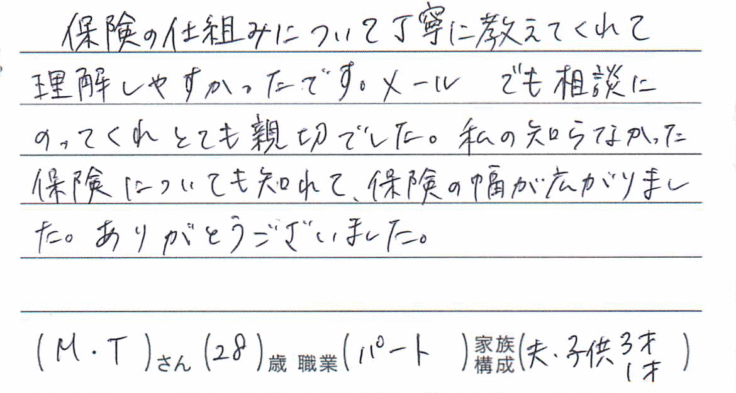 保険の仕組みについて丁寧に教えてくれて
理解しやすかったです。メール でも相談に
のってくれとても親切でした。私の知らなかった
保険についても知れて、保険の幅が広がりまし
た。ありがとうございました。
(M・T)さん(28)歳 職業(パート )家族構成(夫・子供3才1才)